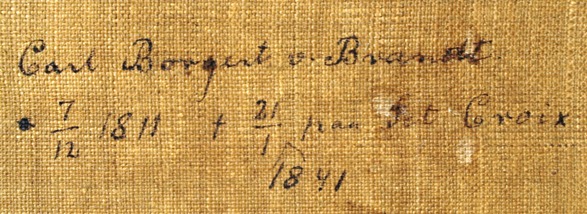 Carl Borgert v. Brandt
* 7/12 1811 + 21/1 paa Sct Croix
1841